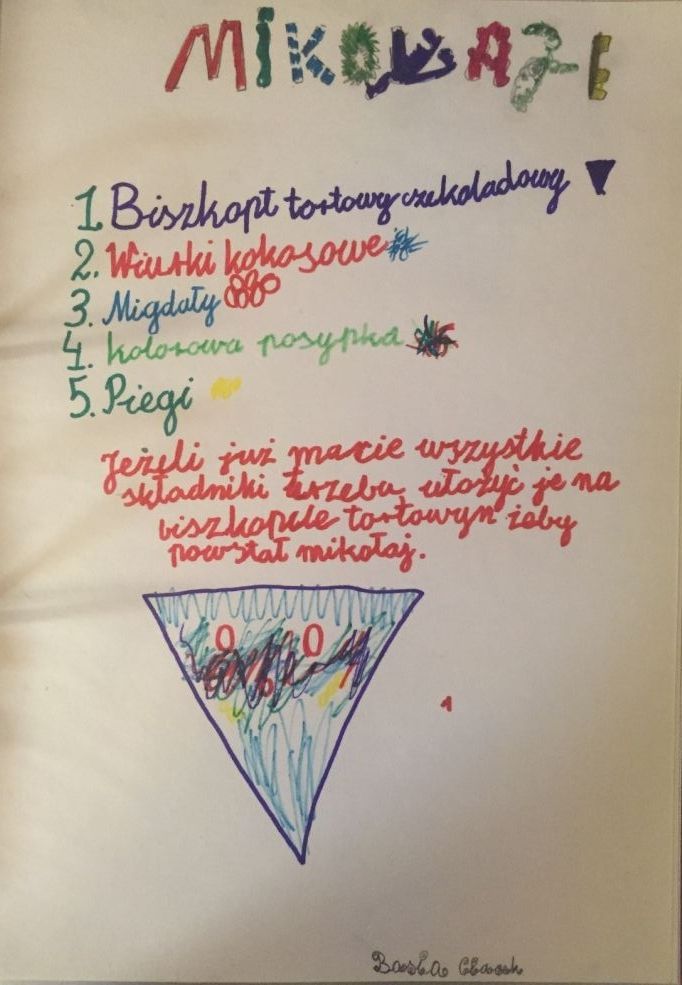 MIKOŁAJE
1. Biszkopt tortowy czekoladowy
2. Wiurki kokosowe
3. Migdały
4. kolorowa posypka
5. Piegi
Jeżeli już macie wszystkie
składniki trzeba ułożyć je na
biszkopcie tortowym żeby
powstał mikołaj.
1
Basia